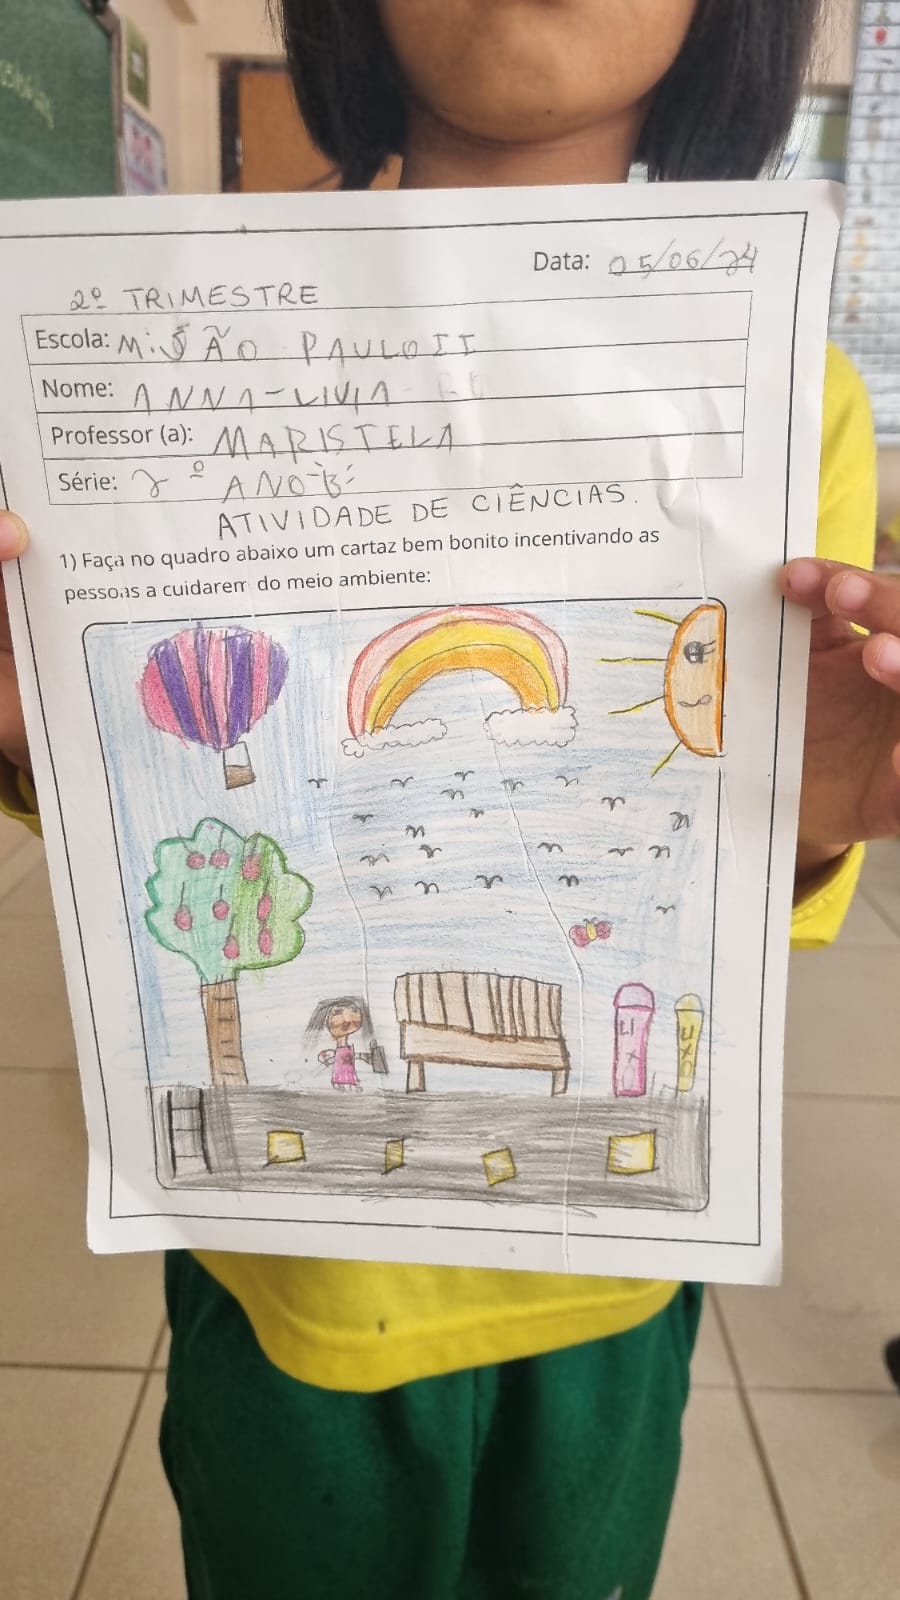 Data: 05/06/24
2º TRIMESTRE
Escola: M. JOÃO PAULO II
Nome: ANNA-LIVIA
Professor (a): MARISTELA
Série: 2º ANO-B-
ATIVIDADE DE CIÊNCIAS.
1) Faça no quadro abaixo um cartaz bem bonito incentivando as
pessoas a cuidarem do meio ambiente:
LIX
LIXO